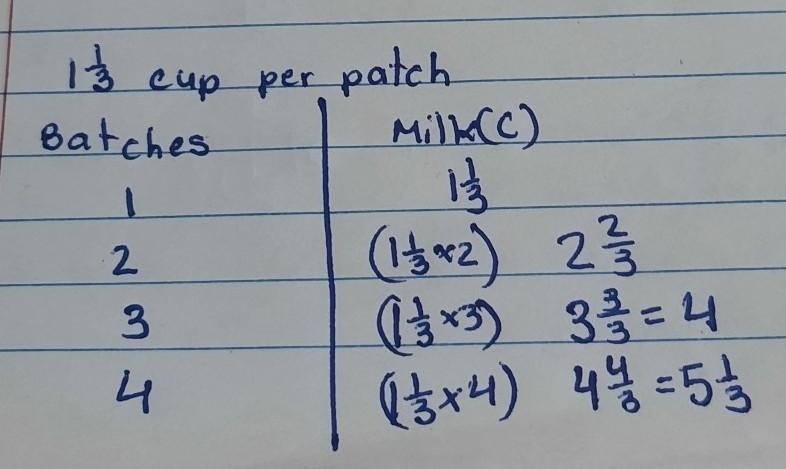 1 1/3 cup per patch
Batches Milk(C)
1 1 1/3
2 (1 1/3 ×2) 2 2/3
3 (1 1/3 ×3) 3 3/3 = 4
4 (1 1/3 ×4) 4 4/3 = 5 1/3